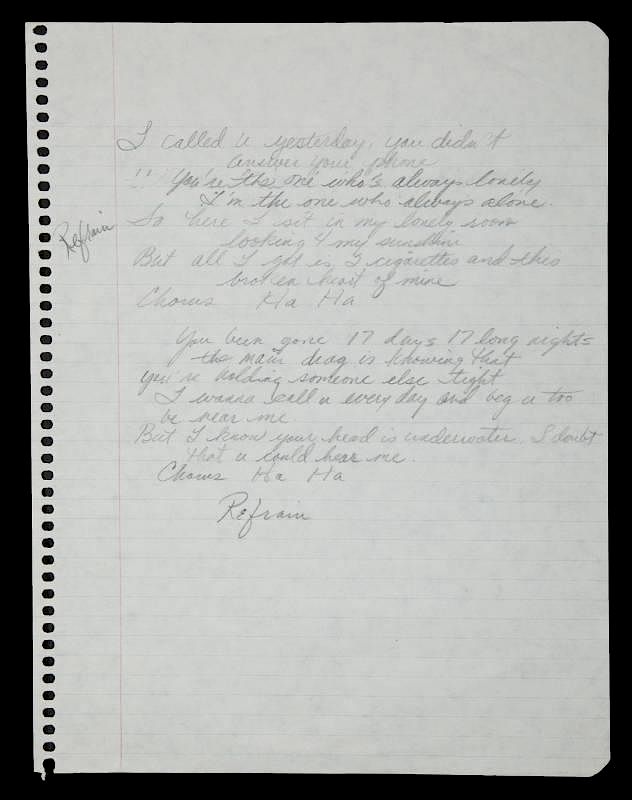 I called u yesterday, you didn't
answer your phone
!! You're the one who's always lonely
I'm the one who always alone.
Refrain
So here I sit in my lonely room
looking 4 my sunshine
But all I got is 2 cigarettes and this
broken heart of mine
Chorus Ha Ha
You been gone 17 days 17 long nights
the main drag is knowing that
you're holding someone else tight
I wanna call u every day and beg u too
be near me
But I know your head is underwater, I doubt
that u could hear me.
Chorus Ha Ha
Refrain